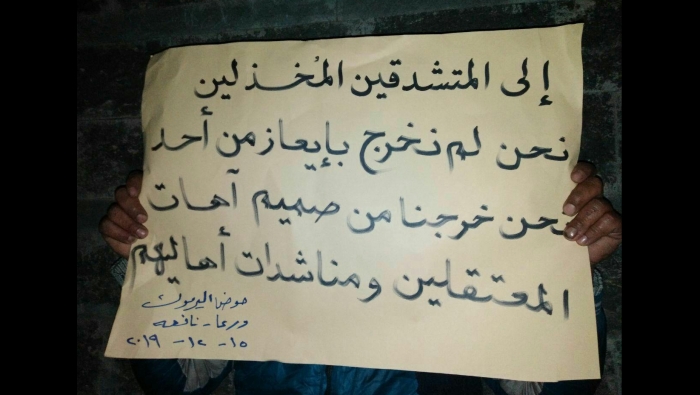 إلى المتشدقين المُخذلين
نحن لم نخرج بإيعاز من أحد
نحن خرجنا من صميم آهات
المعتقلين ومناشدات أهاليهم
حوض اليرموك
درعا - نافعه
١٥ - ١٢ - ٢٠١٩